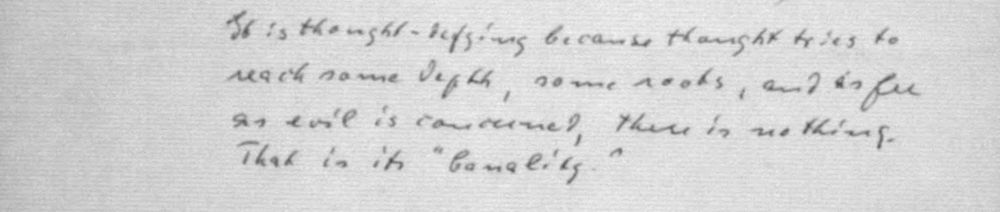 It is thought-defying because thought tries to
reach some depth, some roots, and as far
as evil is concerned, there is nothing.
That is its "banality."